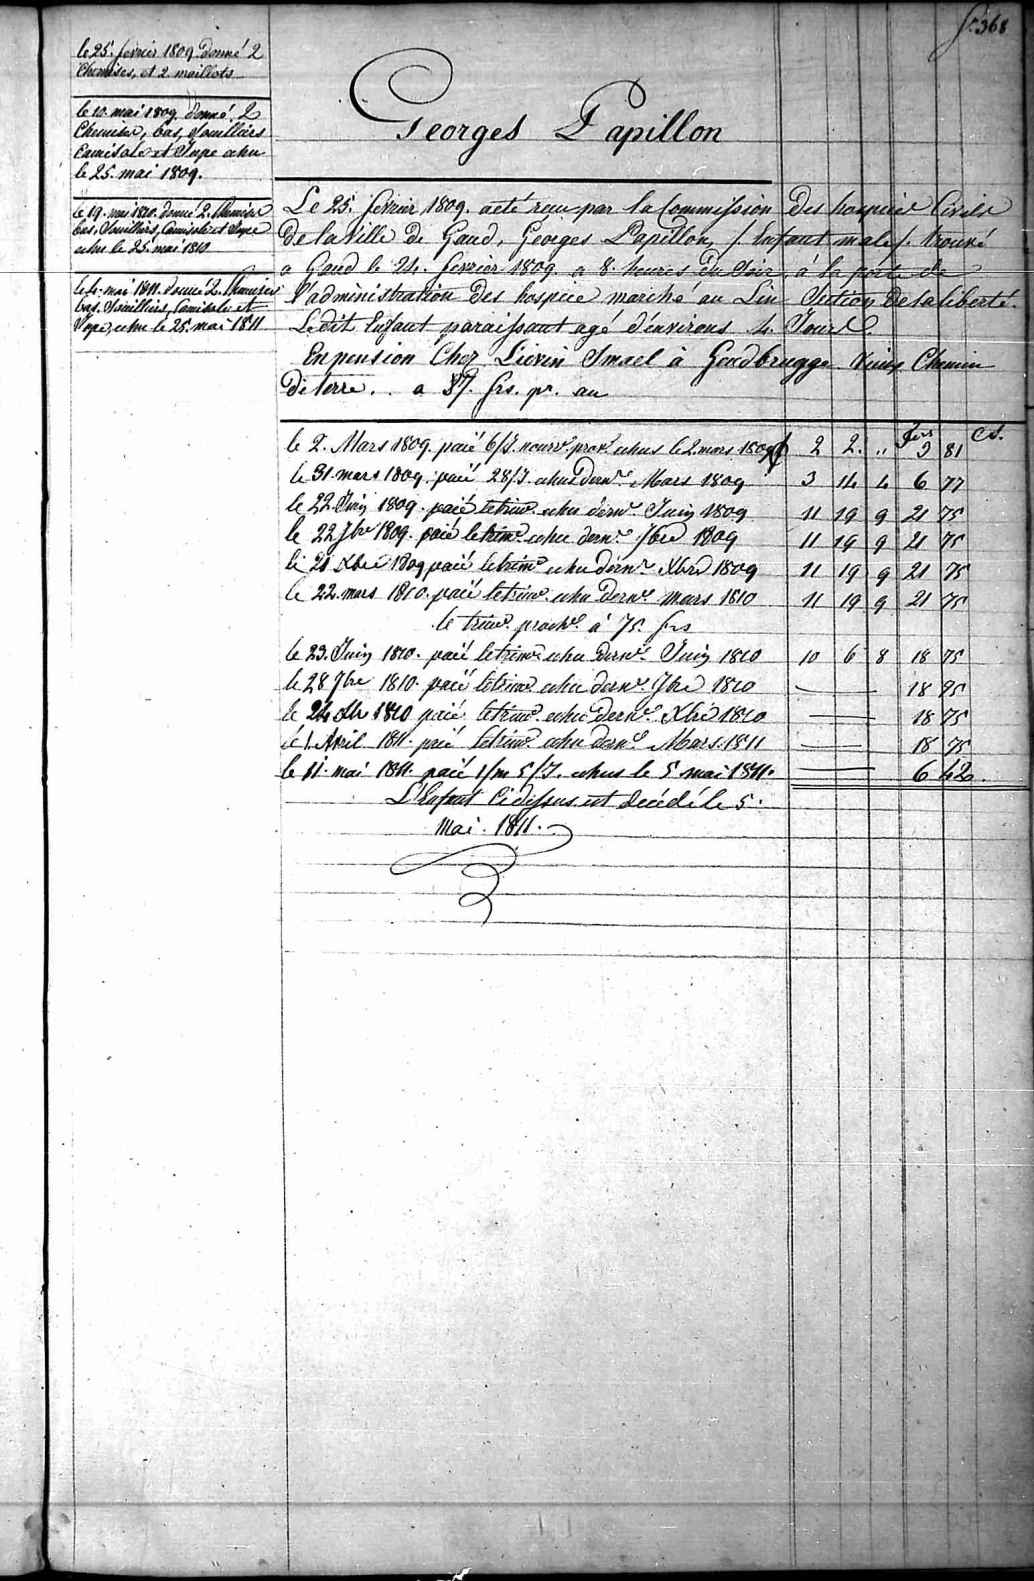 fo. 368
le 25. fevrier 1809 donné 2
Chemises, et 2 maillots
le 10. mai 1809. donné 2
Chemises, bas, Souilliers
Camisole et Jupe echu
le 25. mai 1809.
le 19. mai 1810. donné 2. Chemises
bas, Souilliers, Camisole et Jupe
echu le 25. mai 1810
le 4. mai 1811. donné 2. Chemises
bas, Souilliers, Camisole et
Jupe, echu le 25. mai 1811
Georges Papillon
Le 25. fevrier 1809. a eté recu par la Commission des hospices Civils
de la Ville de Gand, Georges Papillon, /. Enfant male /. trouvé
a Gand le 24. fevrier 1809 a 8. heures du Soir, à la porte de
l'administration des hospice marché au Lin Section de la liberté.
Ledit Enfant paraissant agé d'environs 4. Jours.
En pension Chez Lievin Smael à Gendbrugge Vieux Chemin
de terre .. a 87. frs. pr. an
frs Cs.
le 2. Mars 1809. paié 6/J. nourre. prove. echus le 2. mars 1809 2 2. „ 3 81
le 31. mars 1809. paié 28/J. echus dernr. Mars 1809 3 14 4 6 77
le 22 Juin 1809. paié le trime. echu dernr. Juin 1809 11 19 9 21 75
le 22 7bre 1809. paié le trime. echu dernr. 7bre 1809 11 19 9 21 75
le 21 Xbre 1809 paié le trime. echu dernr. Xbre 1809 11 19 9 21 75
le 22. mars 1810. paié le trime. echu dernr. mars 1810 11 19 9 21 75
le trime. prochn. à 75. frs
le 23. Juin 1810. paié le trime. echu dernr. Juin 1810 10 6 8 18 75
le 28 7bre 1810. paié le trime. echu dernr. 7bre 1810 — 18 75
le 24 Xbr 1810 paié le trime. echu dernr. Xbre 1810 — 18 75
le 1. Avril 1811. paié le trime. echu dernr. Mars. 1811 — 18 75
le 11. mai 1811. paié 1/m 5/J. echus le 5 mai 1811. — 6 42.
L'Enfant Cidessus est decédé le 5.
Mai. 1811.